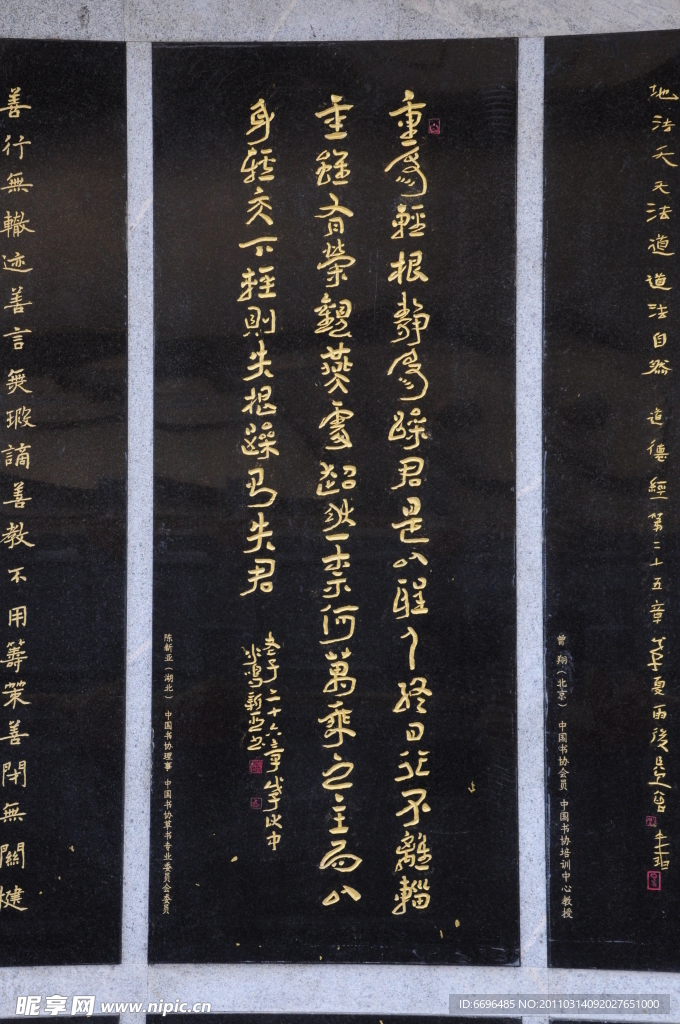 地法天天法道道法自然 道德經第二十五章
曾 翔（北京） 中国书协会员 中国书协培训中心教授
重為輕根靜為躁君是以聖人終日行不離輜
重雖有榮觀燕處超然柰何萬乘之主而以
身輕天下輕則失根躁則失君
老子二十六章
陈新亚（湖北） 中国书协理事 中国书协草书专业委员会委员
善行無轍迹善言無瑕謫善教不用籌策善閉無關楗
昵享网 www.nipic.cn
ID:6696485 NO:20110314092027651000